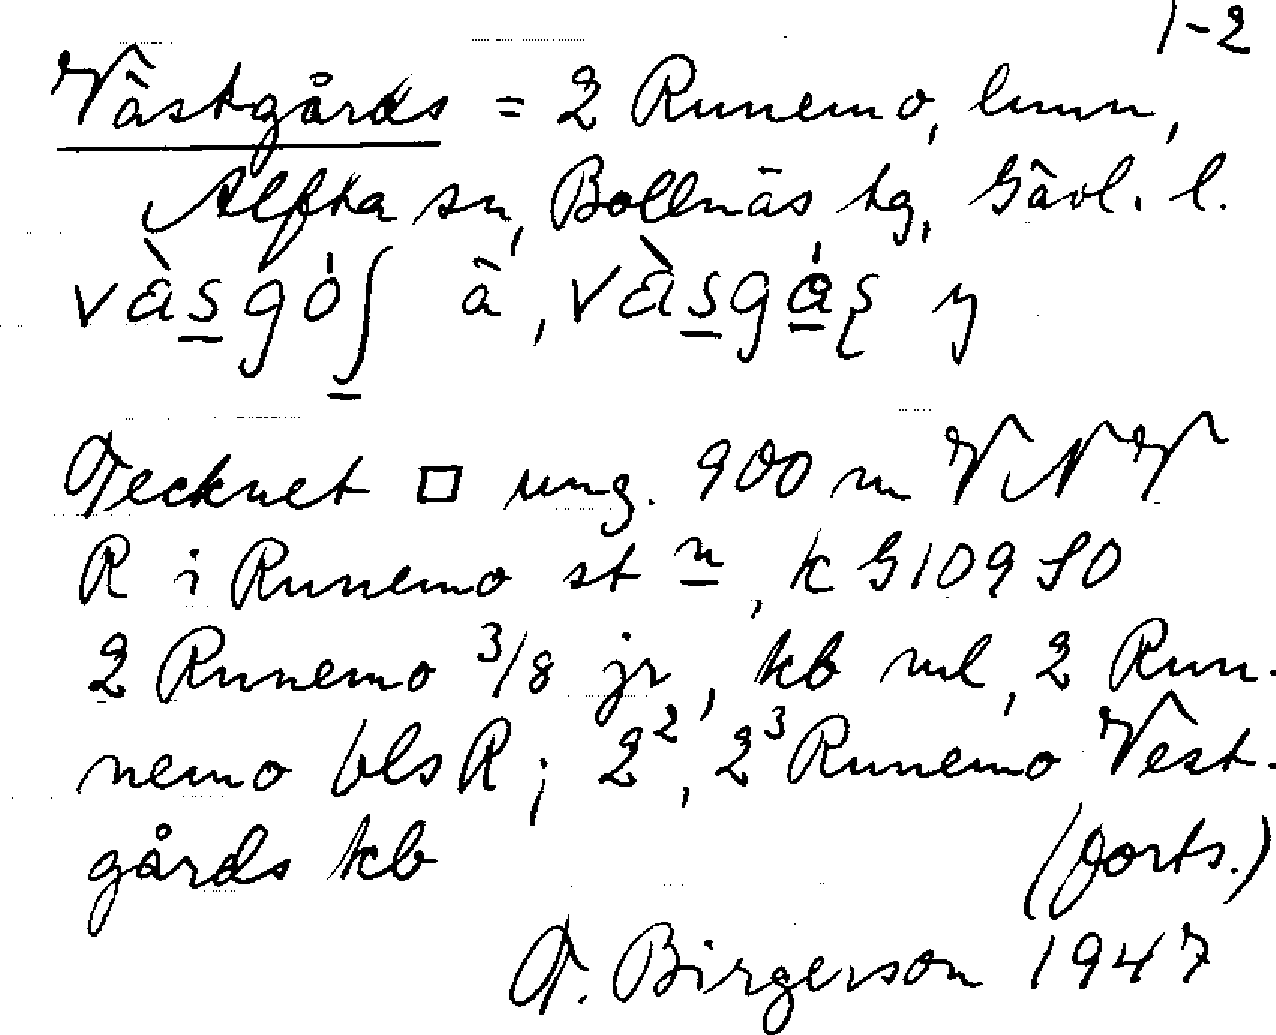 1-2
Västgårds = 2 Runemo, hmn,
Alfta sn, Bollnäs tg, Gävl. l.
và̀sgóʃ ä, và̀sgá̀ş y
Tecknet □ ung. 900 m VNV
R i Runemo st n, k G109 SO
2 Runemo 3/8 jr, kb ml, 2 Run-
nemo bls R; 2², 2³ Runemo Vest-
gårds kb
(forts.)
T. Birgerson 1947